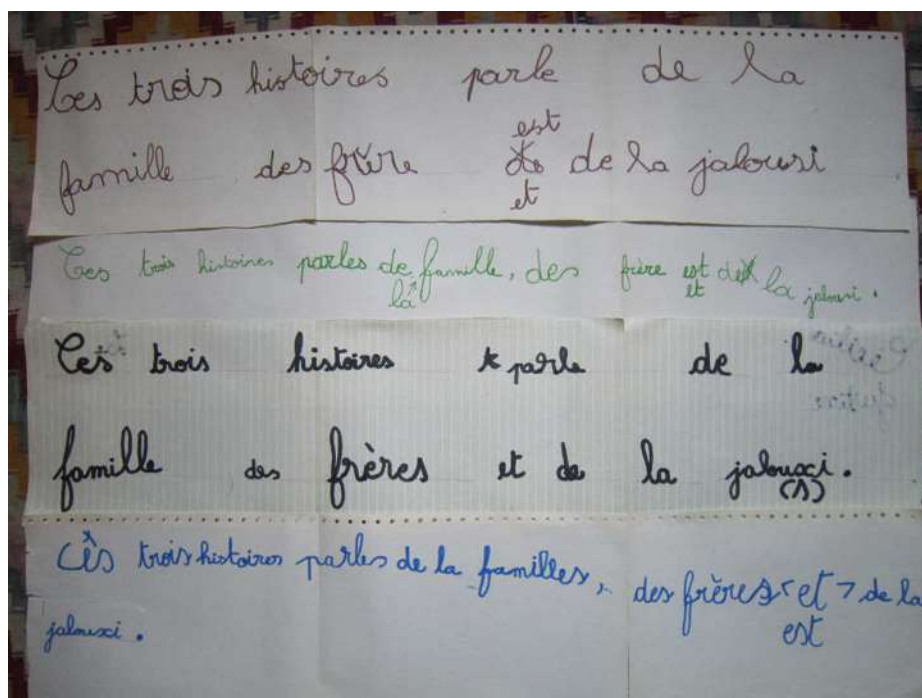 Ces trois histoires parle de la
est
famille des frère de de la jalousi
et
Ces trois histoires parles de famille, des frère est de la jalousi.
la et
Ces trois histoires parle de la
famille des frères et de la jalouxi.
(s)
Cès trois histoires parles de la familles, des frères <et> de la
est
jalouxi.